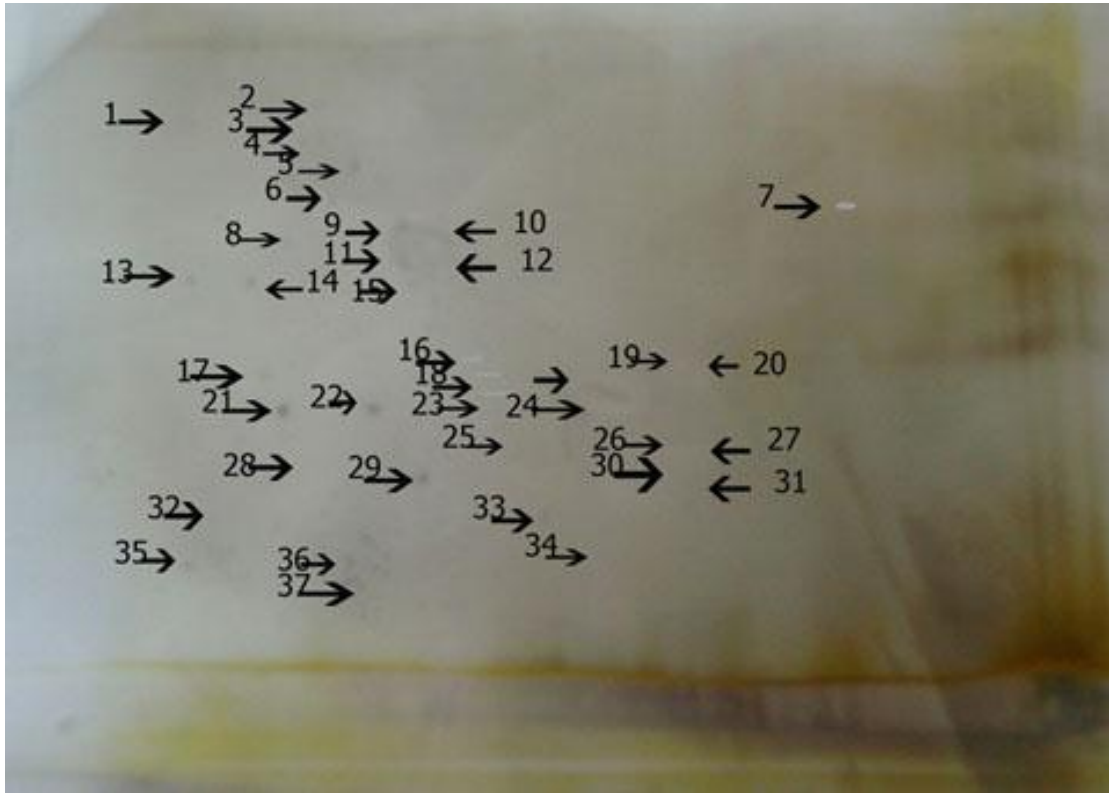 1
2
3
4
5
6
7
8
9
10
11
12
13
14
15
16
17
18
19
20
21
22
23
24
25
26
27
28
29
30
31
32
33
34
35
36
37